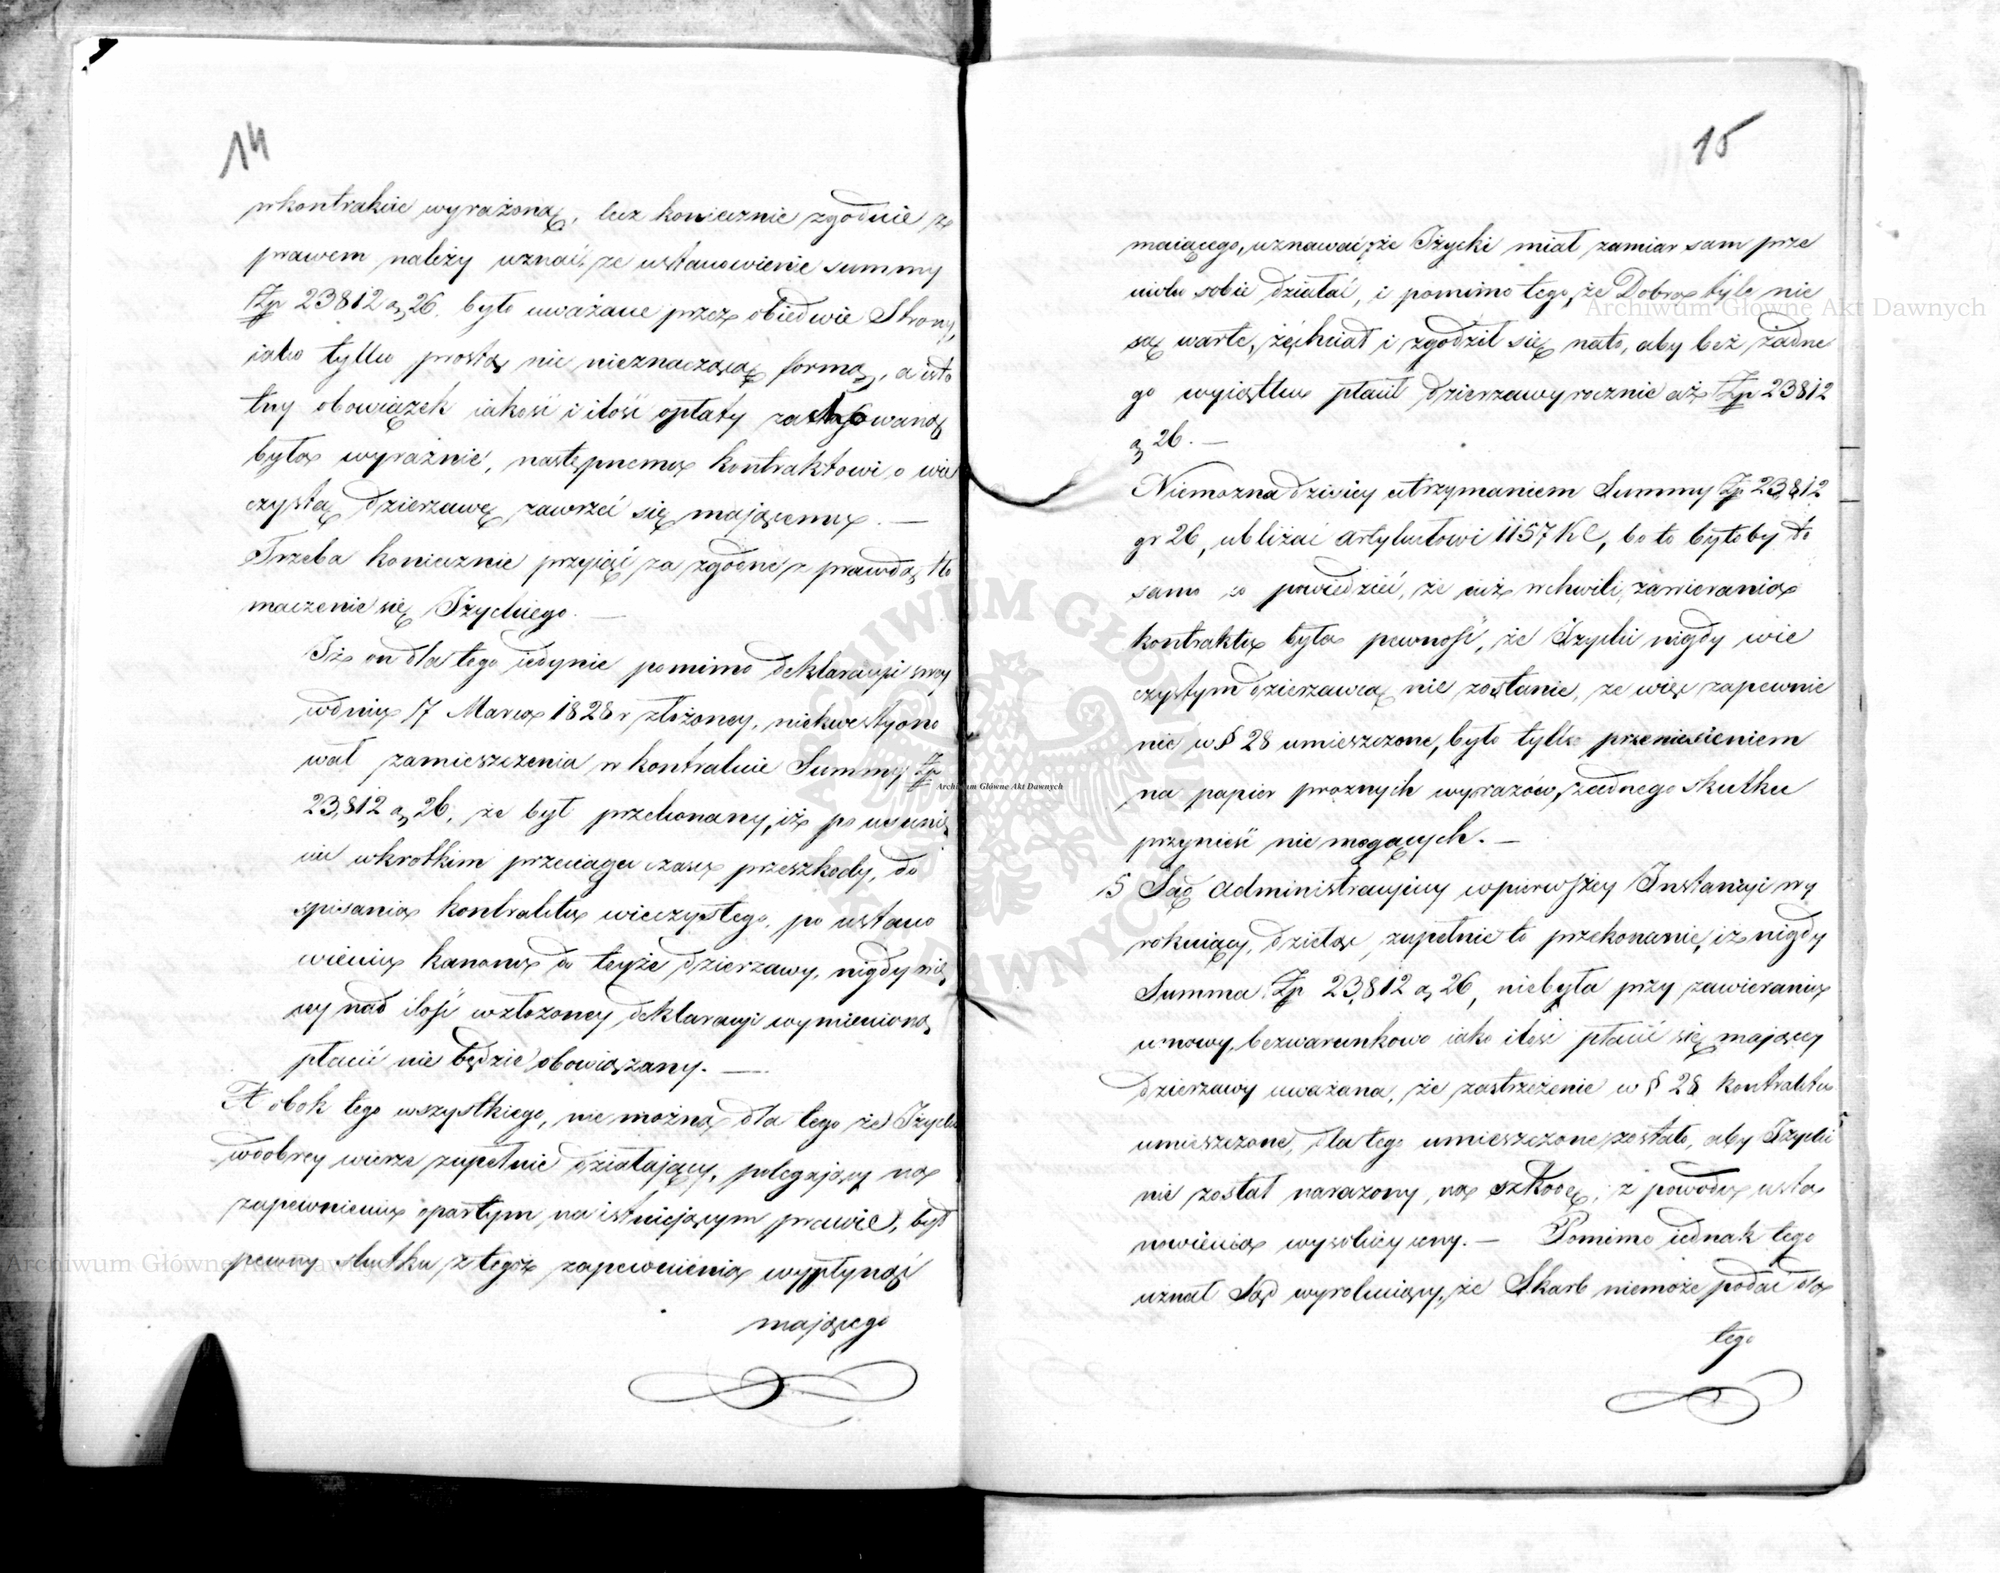 14
w kontrakcie wyrażoną, lecz koniecznie zgodnie z
prawem należy uznać, że ustanowienie summy
Zp 23812 g 26. było uważane przez obiedwie Strony,
iako tylko prosta nic nieznacząca forma, a isto
tny obowiązek iakość i ilość opłaty zastosowaną
była wyraźnie, następnemu kontraktowi o wie
czystą dzierzawę zawrzeć się mającemu. —
Trzeba koniecznie przyjąć za zgodne z prawdą tło
maczenie się Iżyckiego. —
Iż on dla tego iedynie pomimo deklaracyi swey
w dniu 17 Marca 1828 r złożoney, niekwestyono
wał zamieszczenia w kontrakcie Summy Zp
23,812 g 26, że był przekonany, iż po usunię
ciu w krótkim przeciągu czasu przeszkody, do
spisania kontraktu wieczystego, po ustano
wieniu kanonu do teyże dzierzawy, nigdy wię
cy nad ilość w złożoney deklaracyi wymienioną
płacić nie będzie obowiązany. —
A obok tego wszystkiego, nie można dla tego że Iżycki
w dobrey wierze zupełnie działający, polegający na
zapewnieniu opartym na istniejącym prawie, był
pewny skutku z tegoż zapewnienia wypłynąć
mającego
15
maiącego, uznawać, że Iżycki miał zamiar sam prze
ciwko sobie działać, i pomimo tego, że Dobra tyle nie
są warte, że chciał i zgodził się na to, aby bez żadne
go wyiątku płacił dzierzawy rocznie aż Zp 23812
g 26. —
Niemożna dzisiey utrzymaniem Summy Zp 23,812
gr 26, ubliżać artykułowi 1157 KC, bo to byłoby to
samo co powiedzieć, że iuż w chwili zawierania
kontraktu była pewność, że Iżycki nigdy wie
czystym dzierzawcą nie zostanie, że więc zapewnie
nie w § 28 umieszczone, było tylko przeniesieniem
na papier prożnych wyrazów, żadnego skutku
przynieść nie mogących. —
5 Sąd administracyiny w pierwszey Instancyi wy
rokuiący, dzieląc zupełnie to przekonanie, iż nigdy
Summa Zp 23,812 g 26, niebyła przy zawieraniu
umowy, bezwarunkowo iako ilość płacić się mającey
dzierzawy uważana, że zastrzeżenie w § 28 kontraktu
umieszczone, dla tego umieszczone zostało, aby Iżycki
nie został narażony na szkodę, z powodu usta
nowienia wysokiey ceny. — Pomimo iednak tego
uznał Sąd wyrokuiący, że Skarb niemoże podać dla
tego
Archiwum Główne Akt Dawnych
Archiwum Główne Akt Dawnych
Archiwum Główne Akt Dawnych